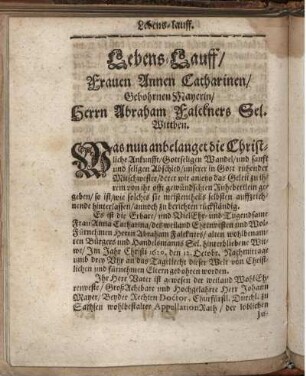 Lebens-lauff.
Lebens-Lauff/
Frauen Annen Catharinen/
Gebohrnen Mayerin/
Herrn Abraham Falckners Sel.
Witben.
Was nun anbelanget die Christ-
liche Ankunfft/ Gottseligen Wandel/ und sanfft
und seligen Abschied/ unserer in Gott ruhenden
Mitschwester/ derer wir anietzo das Geleit zu ih-
rem von ihr offt gewündschten Ruhebettlein ge-
geben/ so ist/ wie solches sie meistentheils selbsten auffzeich-
nende hinterlassen/ annoch zu berichten rückständig.
Es ist die Erbare/ und Viel Ehr- und Tugendsame
Frau Anna Catharina/ des weiland Ehrenvesten und Wol-
Fürnehmen Herrn Abraham Falckners/ alten wohlbenam-
ten Bürgers und Handelsmanns Sel. hinterbliebene Wit-
we/ Im Jahr Christi 1620. den 12. Octobr. Nachmittag
und drey Uhr an das Tagelicht dieser Welt von Christ-
lichen und fürnehmen Eltern gebohren worden.
Ihr Herr Vater ist gewesen der weiland Wohl Eh-
renveste/ Groß Achtbare und Hochgelahrte Herr Johann
Mayer/ Beyder Rechten Doctor, Churfürstl. Durchl. zu
Sachsen wohlbestalter Appellation Rath/ der löblichen
Ju-